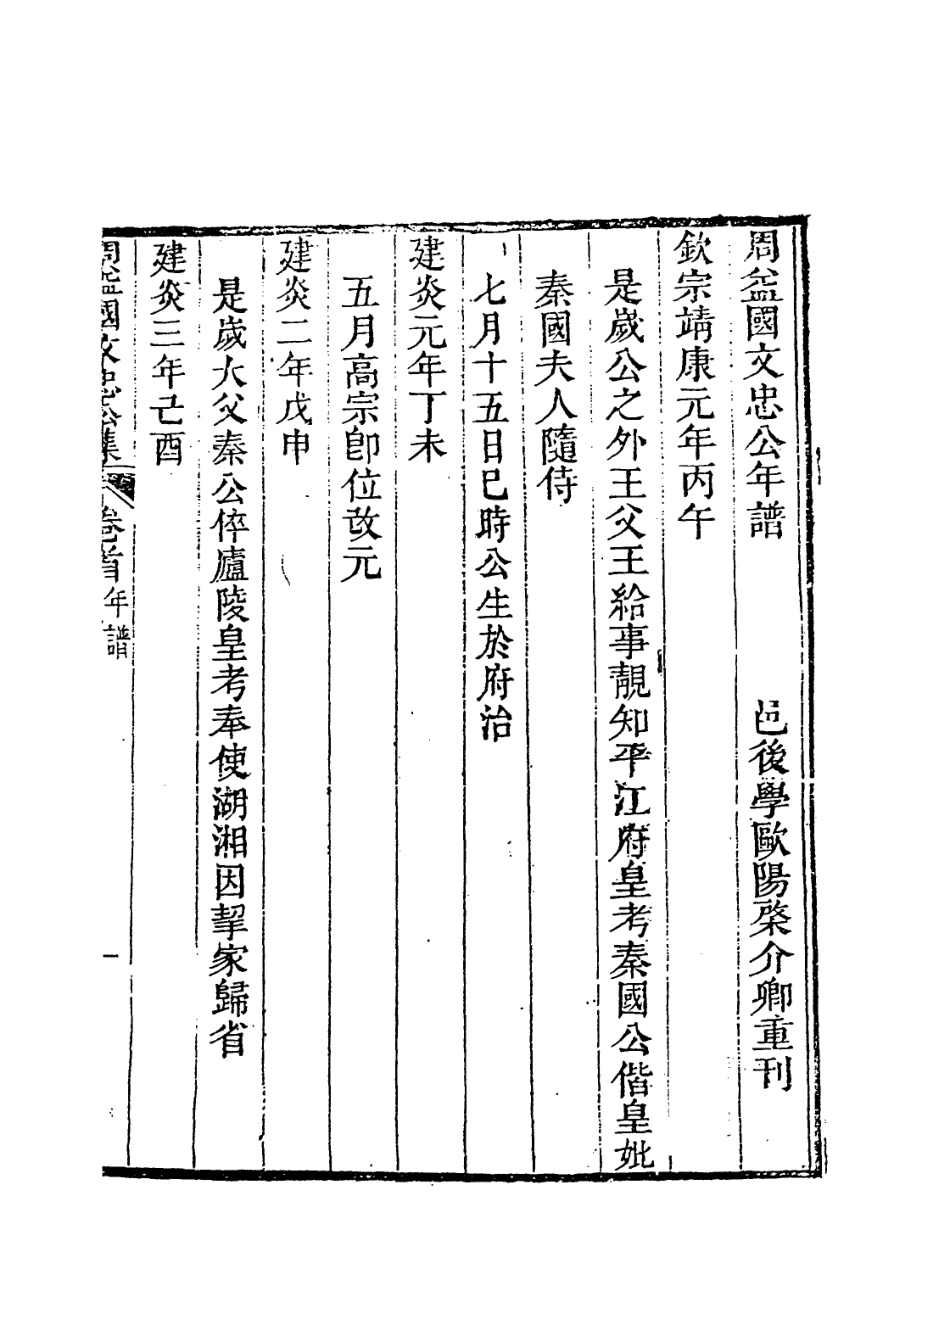 周益國文忠公年譜 邑後學歐陽棨介卿重刊
欽宗靖康元年丙午
是歲公之外王父王給事靚知平江府皇考秦國公偕皇妣
秦國夫人隨侍
七月十五日巳時公生於府治
建炎元年丁未
五月高宗卽位改元
建炎二年戊申
是歲大父秦公倅廬陵皇考奉使湖湘因挈家歸省
建炎三年己酉
周益國文忠公集 卷首年譜 一